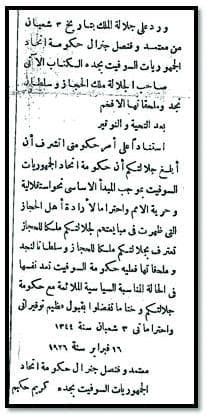 ورد على جلالة الملك بتاريخ ٣ شعبان
من معتمد وقنصل جنرال حكومة اتحاد
الجمهوريات السوفيت بجدة الكتاب الآتي
صاحب الجلالة ملك الحجاز وسلطان
نجد وملحقاتها الافخم
بعد التحية والتوقير
استناداً على أمر حكومتي اتشرف أن
أبلغ جلالتكم أن حكومة اتحاد الجمهوريات
السوفيت بموجب المبدأ الاساسي نحو استقلالية
وحرية الامم واحتراما لأرادة أهل الحجاز
التي ظهرت في مبايعتهم لجلالتكم ملكا للحجاز
تعترف بجلالتكم ملكا للحجاز وسلطانا لنجد
وملحقاتها فعليه حكومة السوفيت تعد نفسها
في الحالة المناسبة السياسية الملائمة مع حكومة
جلالتكم وختاما تفضلوا بقبول عظيم توقيراتي
واحتراماتي ٣ شعبان سنة ١٣٤٤
١٦ فبراير سنة ١٩٢٦
معتمد وقنصل جنرال حكومة اتحاد
الجمهوريات السوفيت بجده كريم حكيم